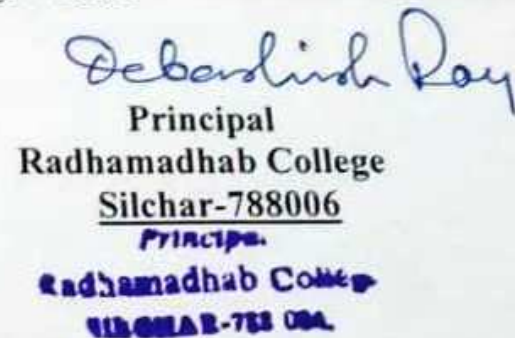 Debashish Roy
Principal
Radhamadhab College
Silchar-788006
Principa.
Radhamadhab College
SILCHAR-788 006.